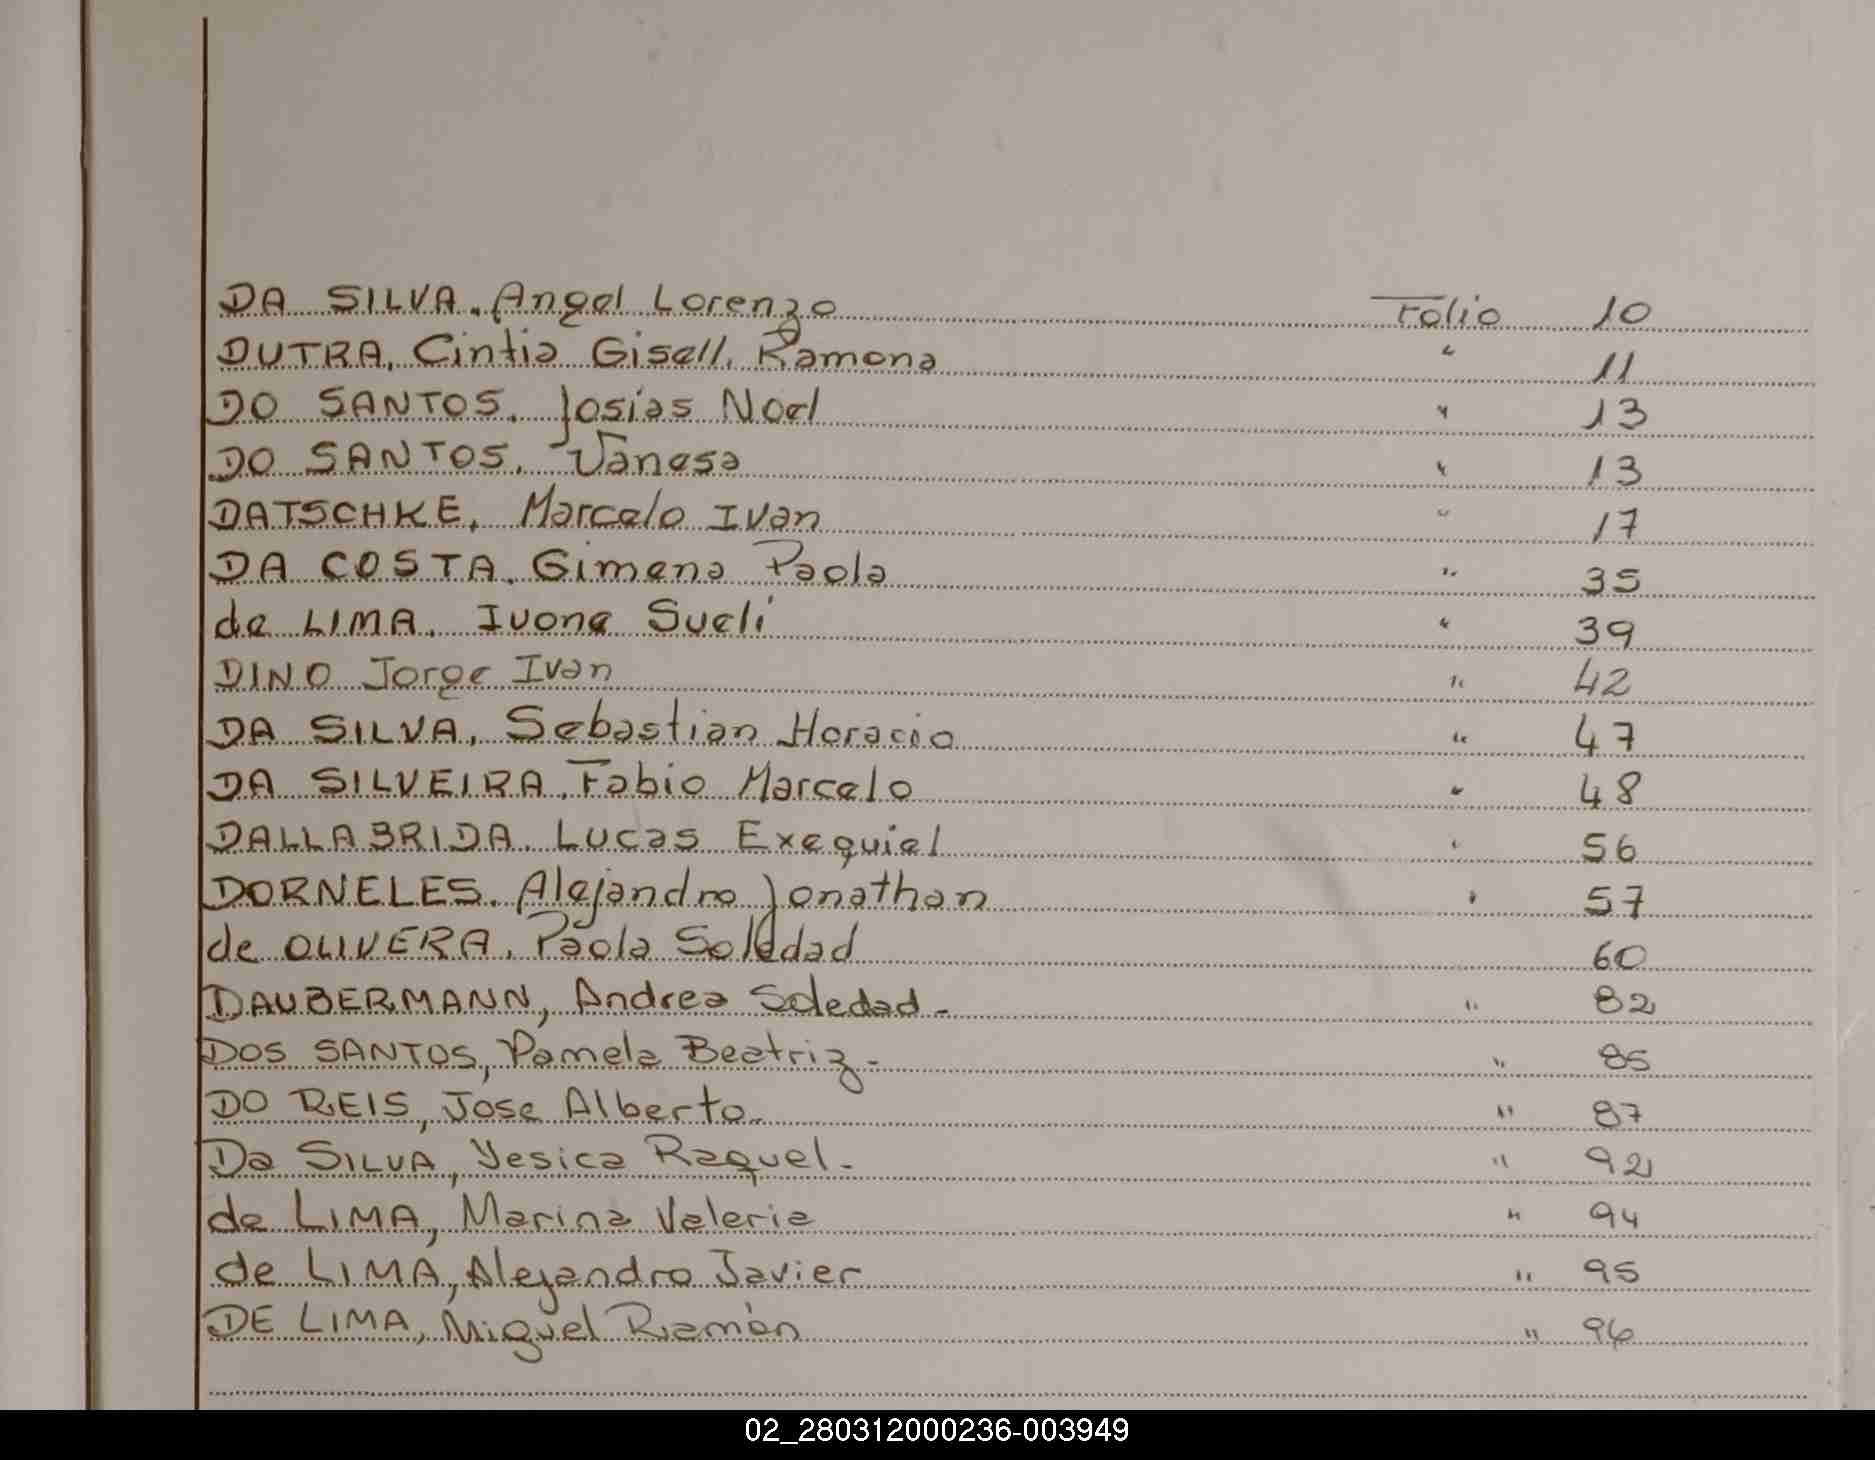 DA SILVA, Angel Lorenzo Folio 10
DUTRA, Cintia Gisell Ramona " 11
DO SANTOS, Josias Noel " 13
DO SANTOS, Vanesa " 13
DATSCHKE, Marcelo Ivan " 17
DA COSTA, Gimena Paola " 35
de LIMA, Ivone Sueli " 39
DINO Jorge Ivan " 42
DA SILVA, Sebastian Horacio " 47
DA SILVEIRA, Fabio Marcelo " 48
DALLABRIDA, Lucas Exequiel " 56
DORNELES, Alejandro Jonathan " 57
de OLIVERA, Paola Soledad 60
DAUBERMANN, Andrea Soledad - " 82
DOS SANTOS, Pamela Beatriz - " 85
DO REIS, Jose Alberto - " 87
Da SILVA, Yesica Raquel - " 92
de LIMA, Marina Valeria " 94
de LIMA, Alejandro Javier " 95
DE LIMA, Miguel Ramón " 96
02_280312000236-003949